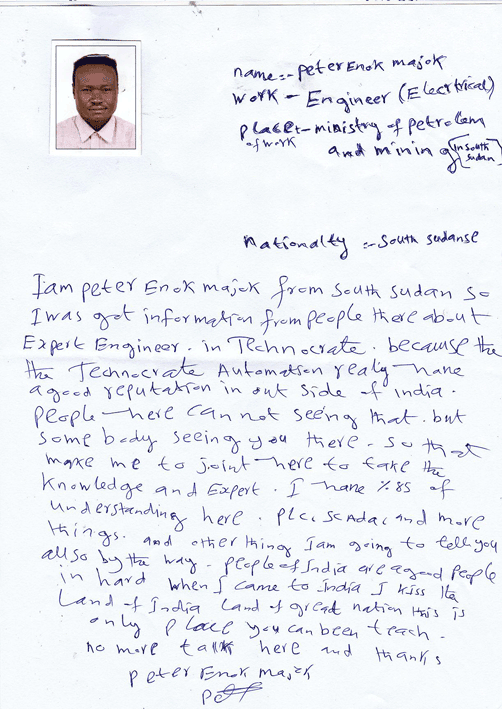 name:- Peter Enok majok
work - Engineer (Electrical)
place:- ministry of petrolem
of work
and mining [in South
Sudan]
Nationalty :- South Sudanse
I am peter Enok majok from South Sudan so
I was got information from people there about
Expert Engineer. in Technocrate. because the
the Technocrate Automation realy have
a good reputation in out side of india.
people here can not seeing that. but
some body seeing you there. so that
make me to joint here to take the
Knowledge and Expert. I have %85 of
understanding here. PLC, SCADA, and more
things. and other thing I am going to tell you
allso by the way - people of India are a good people
in hard when I came to India I kiss the
Land of India Land of great nation this is
only place you can been teach.
no more talk here and thanks
peter Enok majok